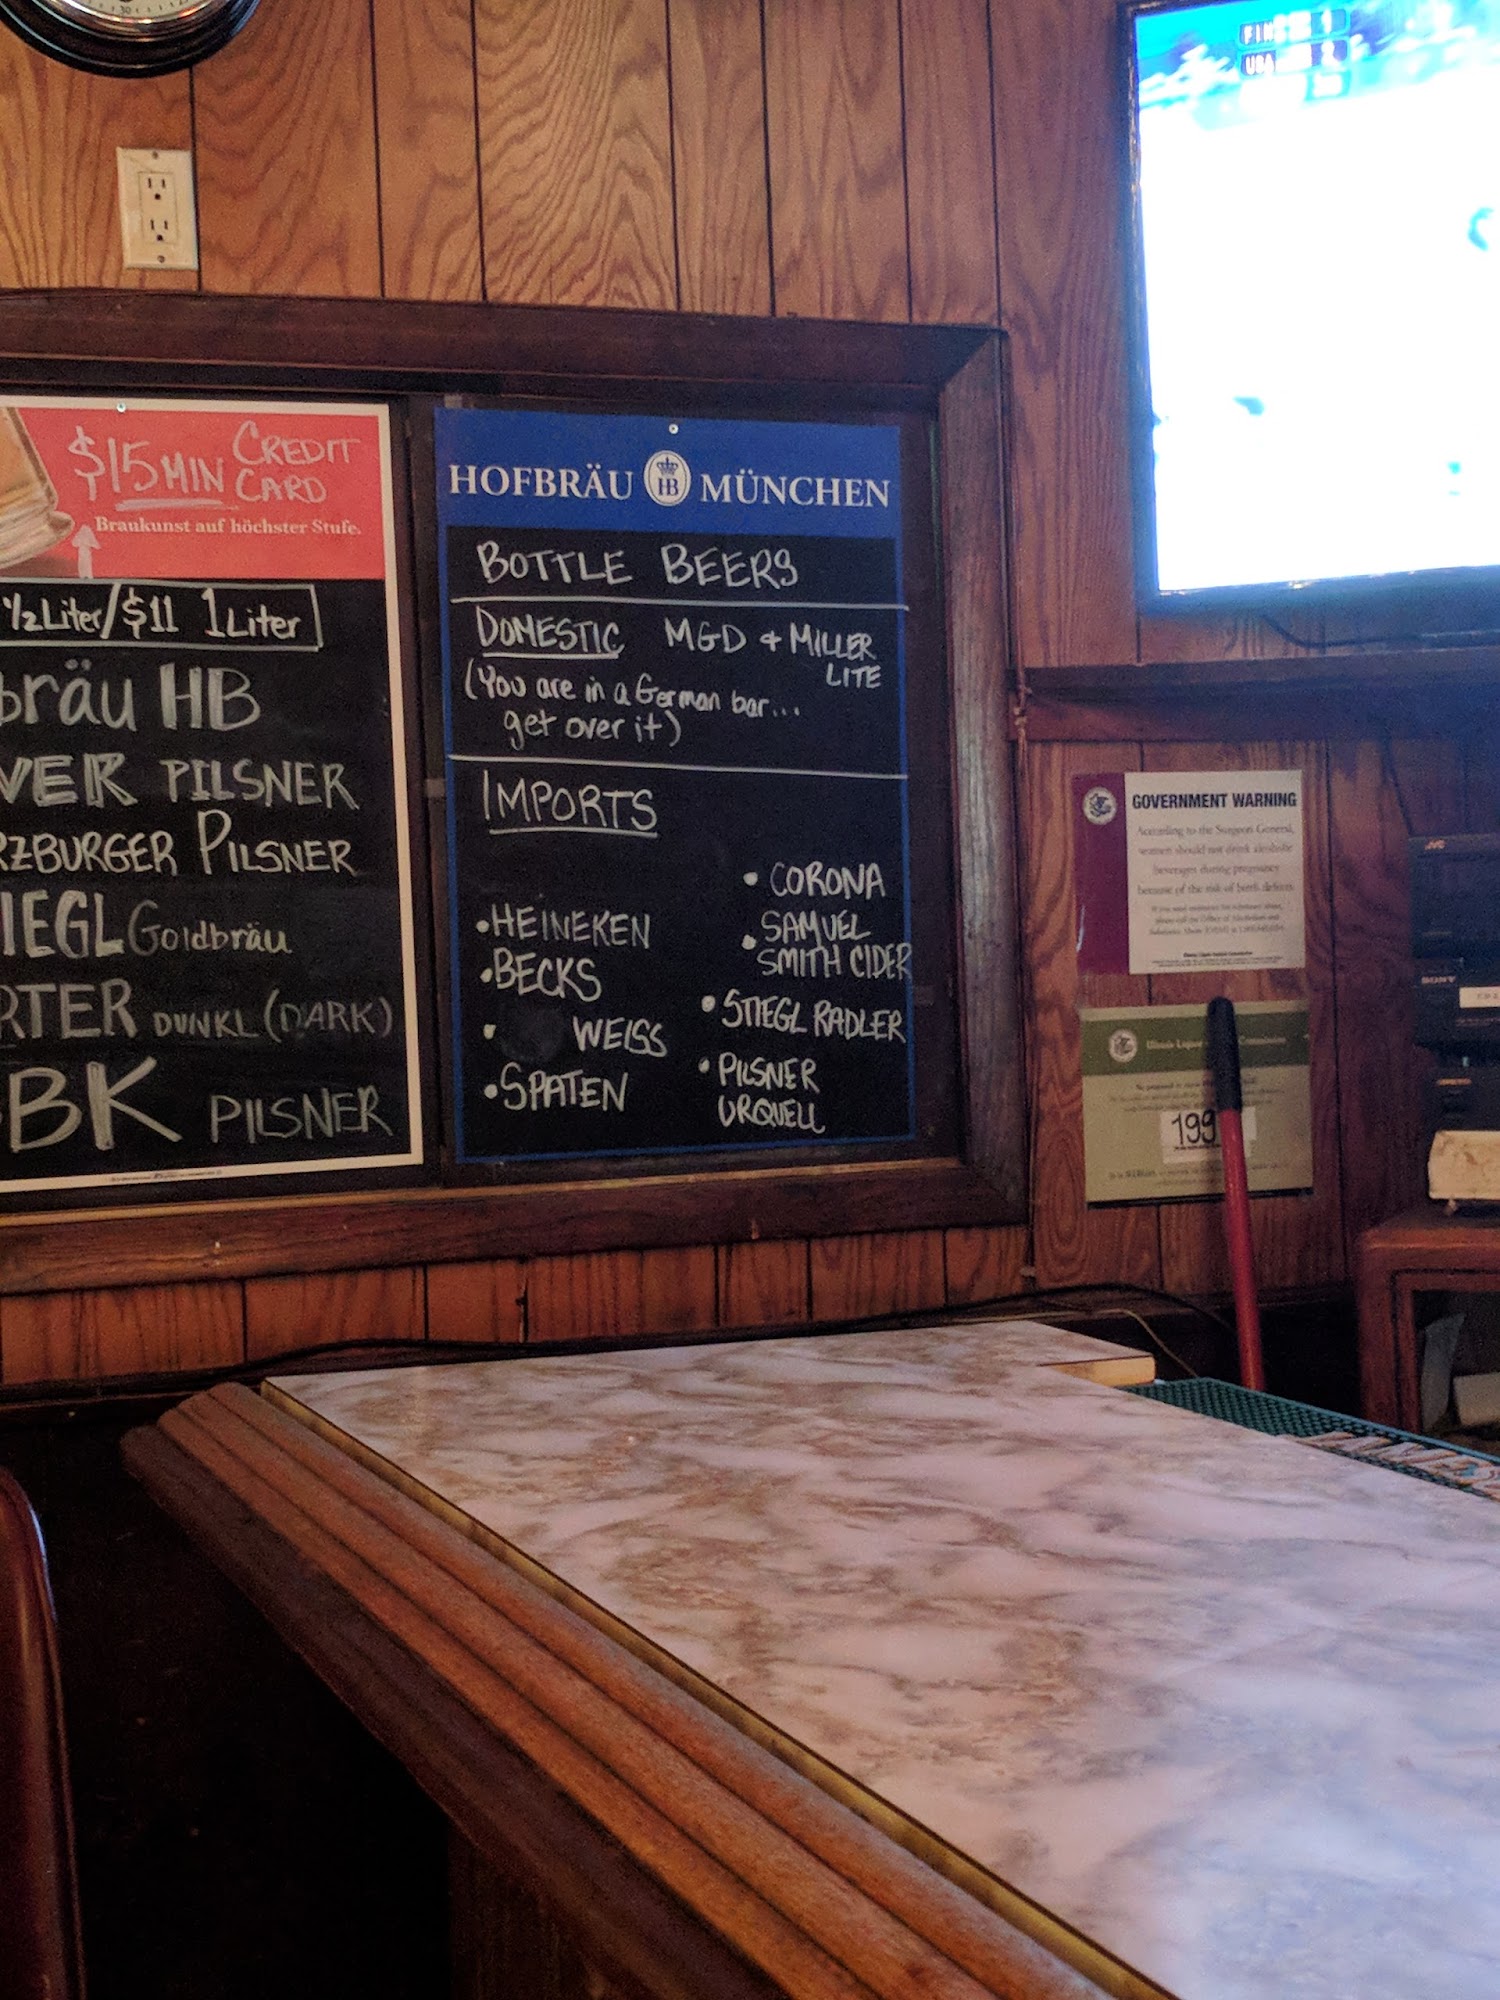 $15 MIN CREDIT
CARD
Braukunst auf höchster Stufe.
½ Liter/$11 1 Liter
bräu HB
VER PILSNER
RZBURGER PILSNER
IEGL Goldbräu
RTER DUNKL (DARK)
BK PILSNER
HOFBRÄU HB MÜNCHEN
BOTTLE BEERS
DOMESTIC MGD + MILLER
LITE
(You are in a German bar...
get over it)
IMPORTS
• HEINEKEN
• BECKS
• WEISS
• SPATEN
• CORONA
• SAMUEL
SMITH CIDER
• STIEGL RADLER
• PILSNER
URQUELL
FIN
USA 2
GOVERNMENT WARNING
According to the Surgeon General,
women should not drink alcoholic
beverages during pregnancy
because of the risk of birth defects
Illinois Liquor Commission
199
JVC
SONY